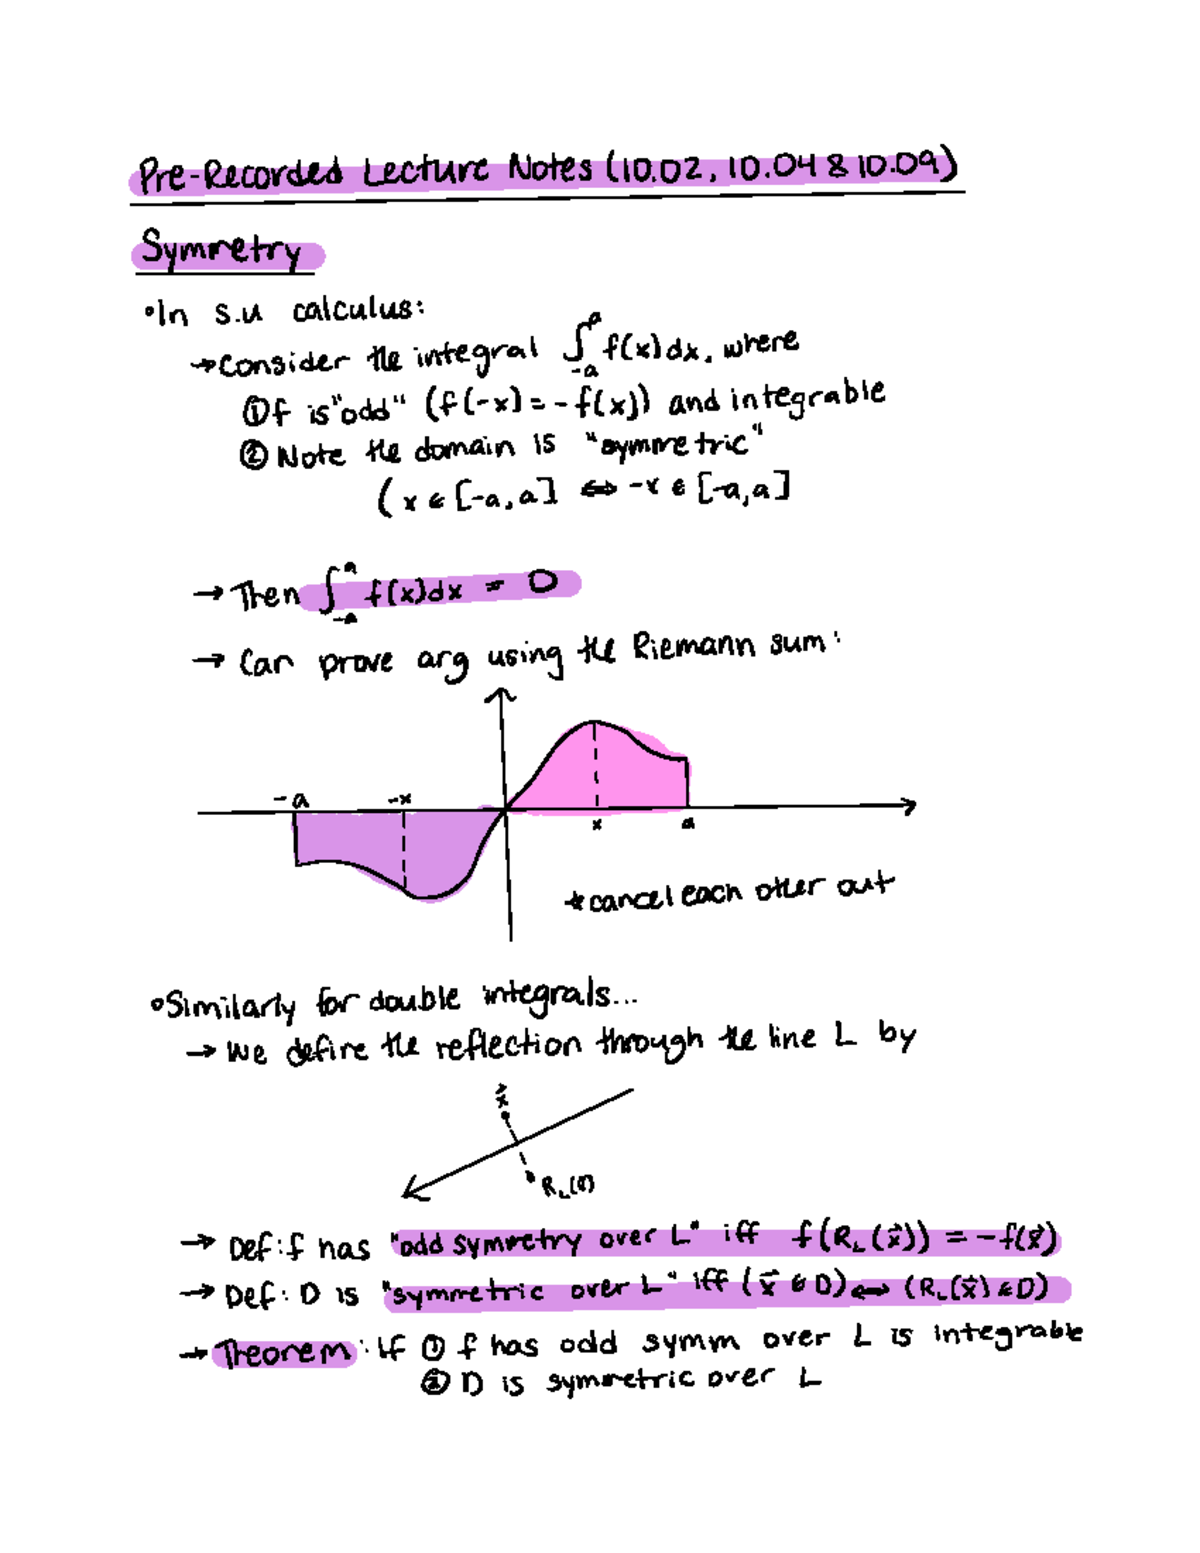 Pre-Recorded Lecture Notes (10.02, 10.04 & 10.09)
Symmetry
•In s.u calculus:
→Consider the integral ∫₋ₐᵃ f(x)dx, where
①f is "odd" (f(-x) = -f(x)) and integrable
②Note the domain is "symmetric"
(x ∈ [-a,a] ⇔ -x ∈ [-a,a]
→ Then ∫₋ₐᵃ f(x)dx = 0
→ Can prove arg using the Riemann sum:
-a -x
x a
*cancel each other out
•Similarly for double integrals...
→ We define the reflection through the line L by
x⃗
R_L(x⃗)
→ Def: f has "odd symmetry over L" iff f(R_L(x⃗)) = -f(x⃗)
→ Def: D is "symmetric over L" iff (x⃗ ∈ D) ⇔ (R_L(x⃗) ∈ D)
→ Theorem: If ① f has odd symm over L is integrable
② D is symmetric over L